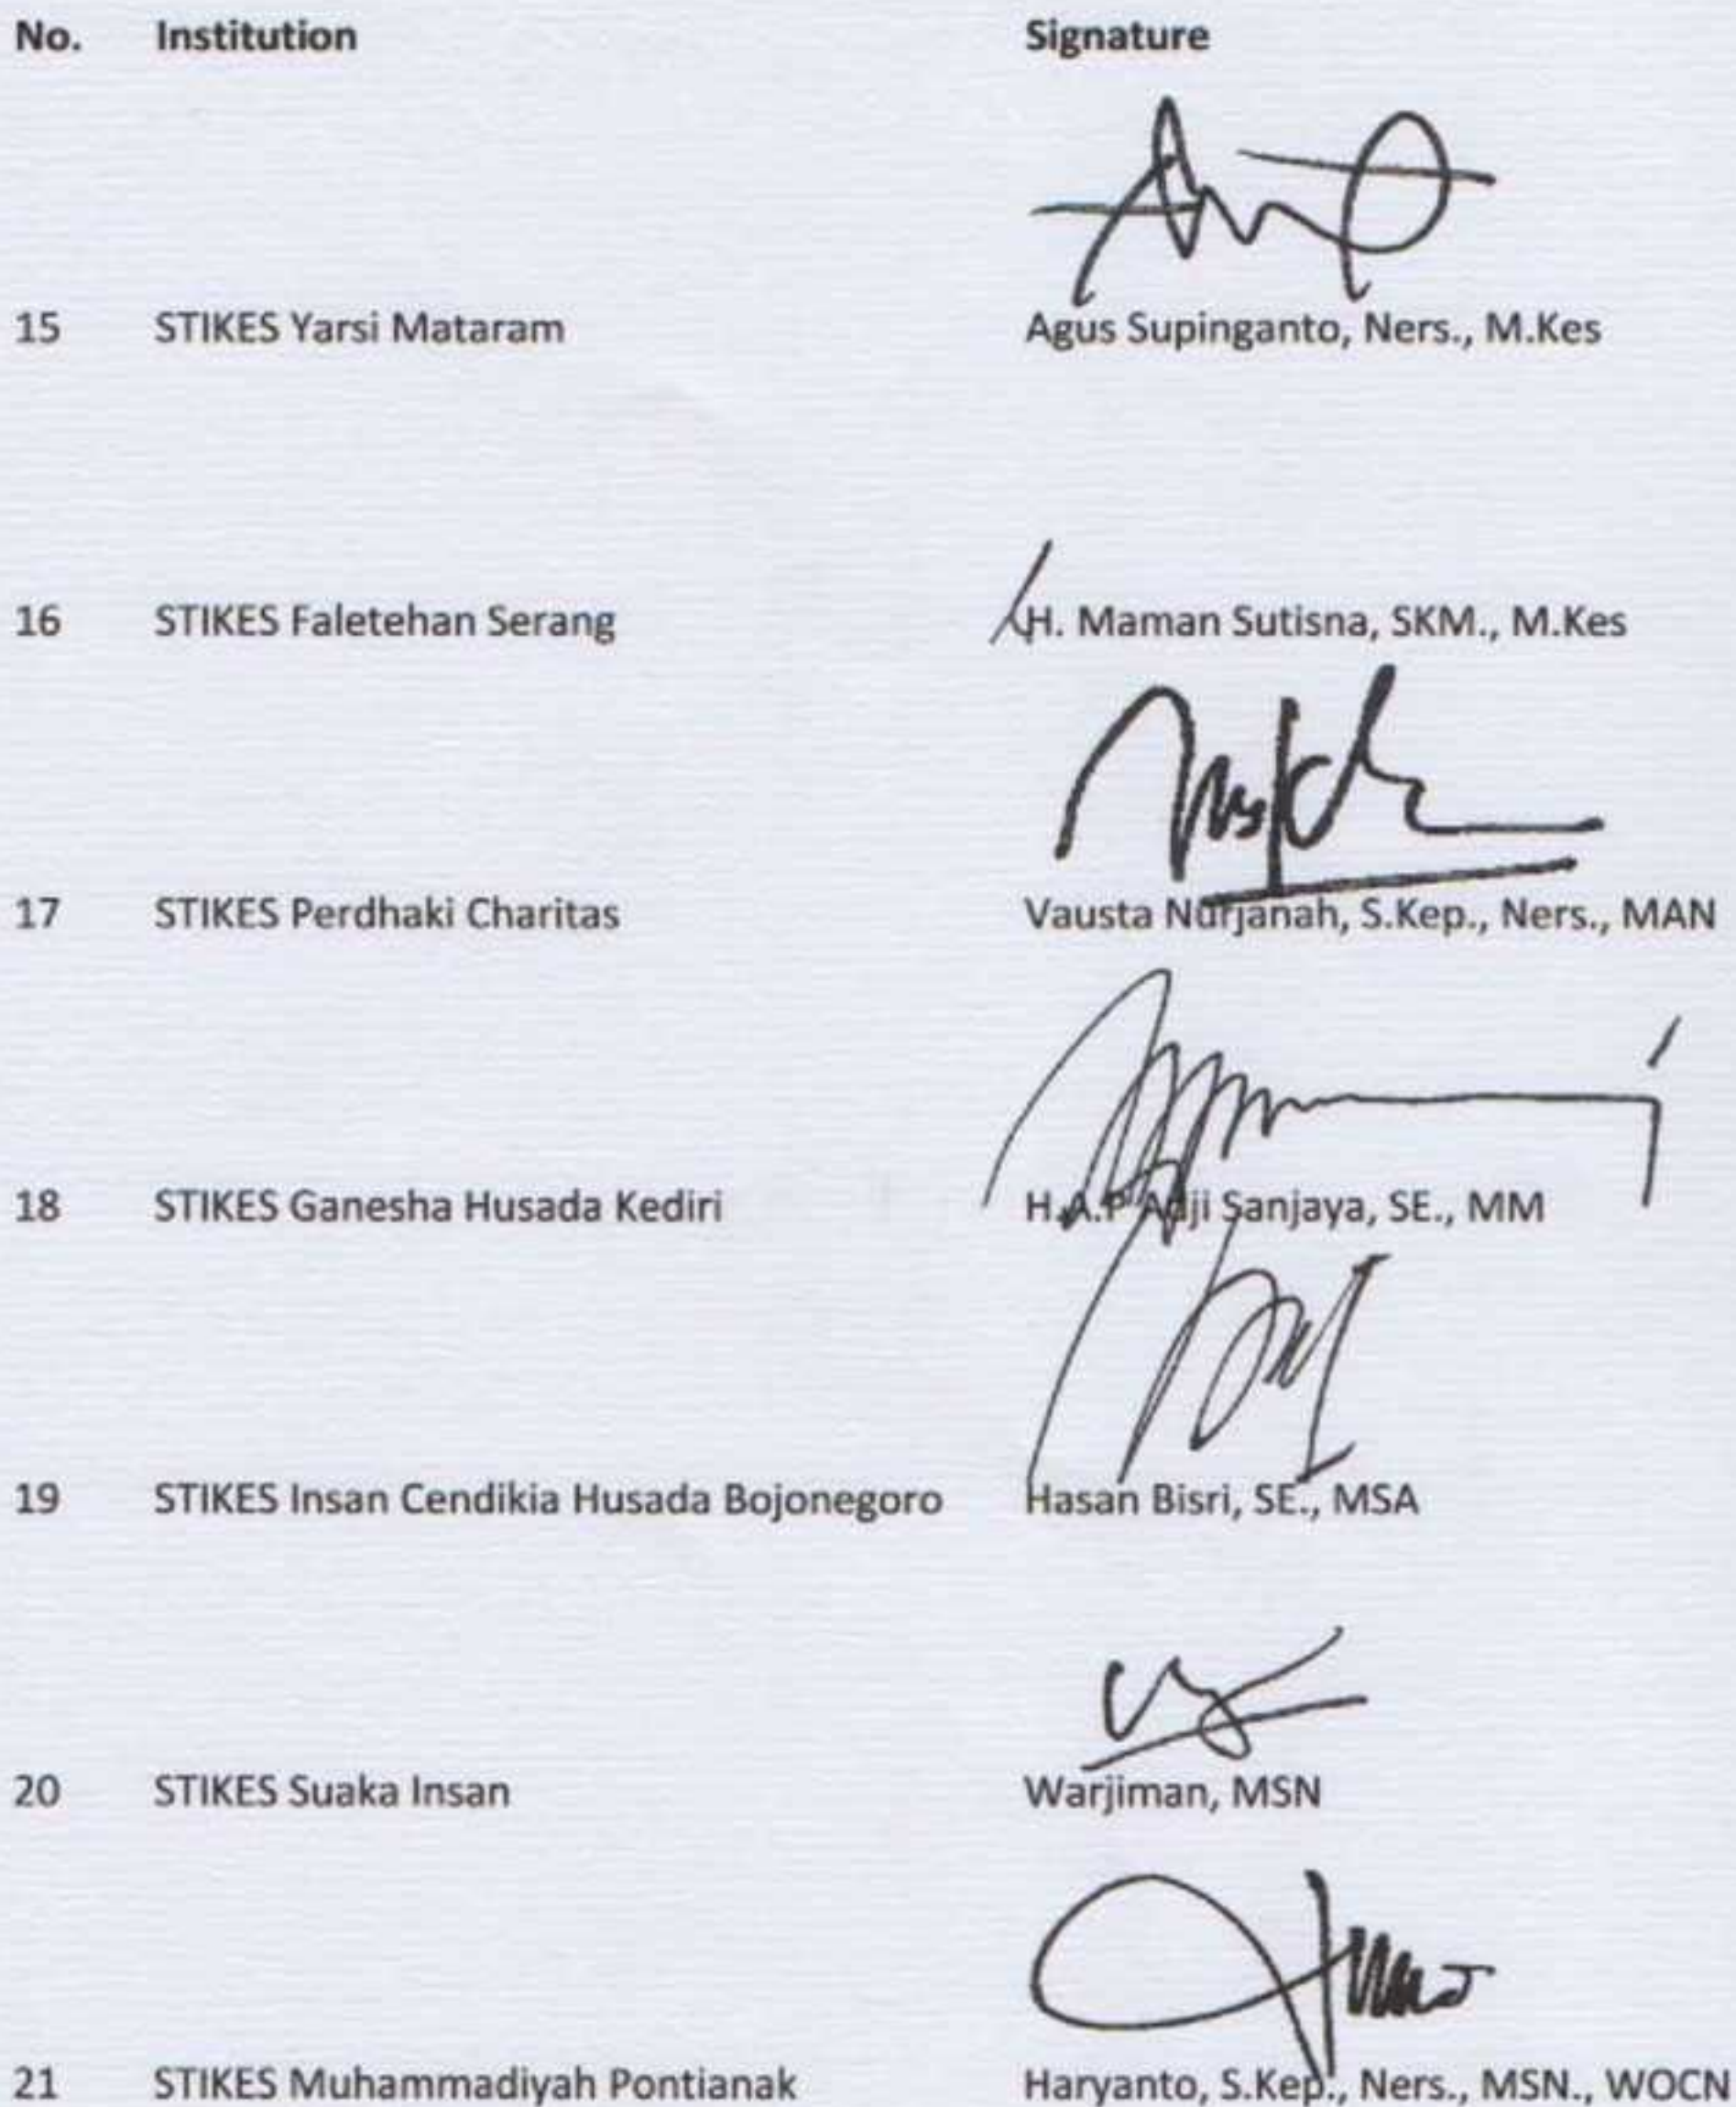 No. Institution Signature
15 STIKES Yarsi Mataram Agus Supinganto, Ners., M.Kes
16 STIKES Faletehan Serang H. Maman Sutisna, SKM., M.Kes
17 STIKES Perdhaki Charitas Vausta Nurjanah, S.Kep., Ners., MAN
18 STIKES Ganesha Husada Kediri H.A.P Adji Sanjaya, SE., MM
19 STIKES Insan Cendikia Husada Bojonegoro Hasan Bisri, SE., MSA
20 STIKES Suaka Insan Warjiman, MSN
21 STIKES Muhammadiyah Pontianak Haryanto, S.Kep., Ners., MSN., WOCN